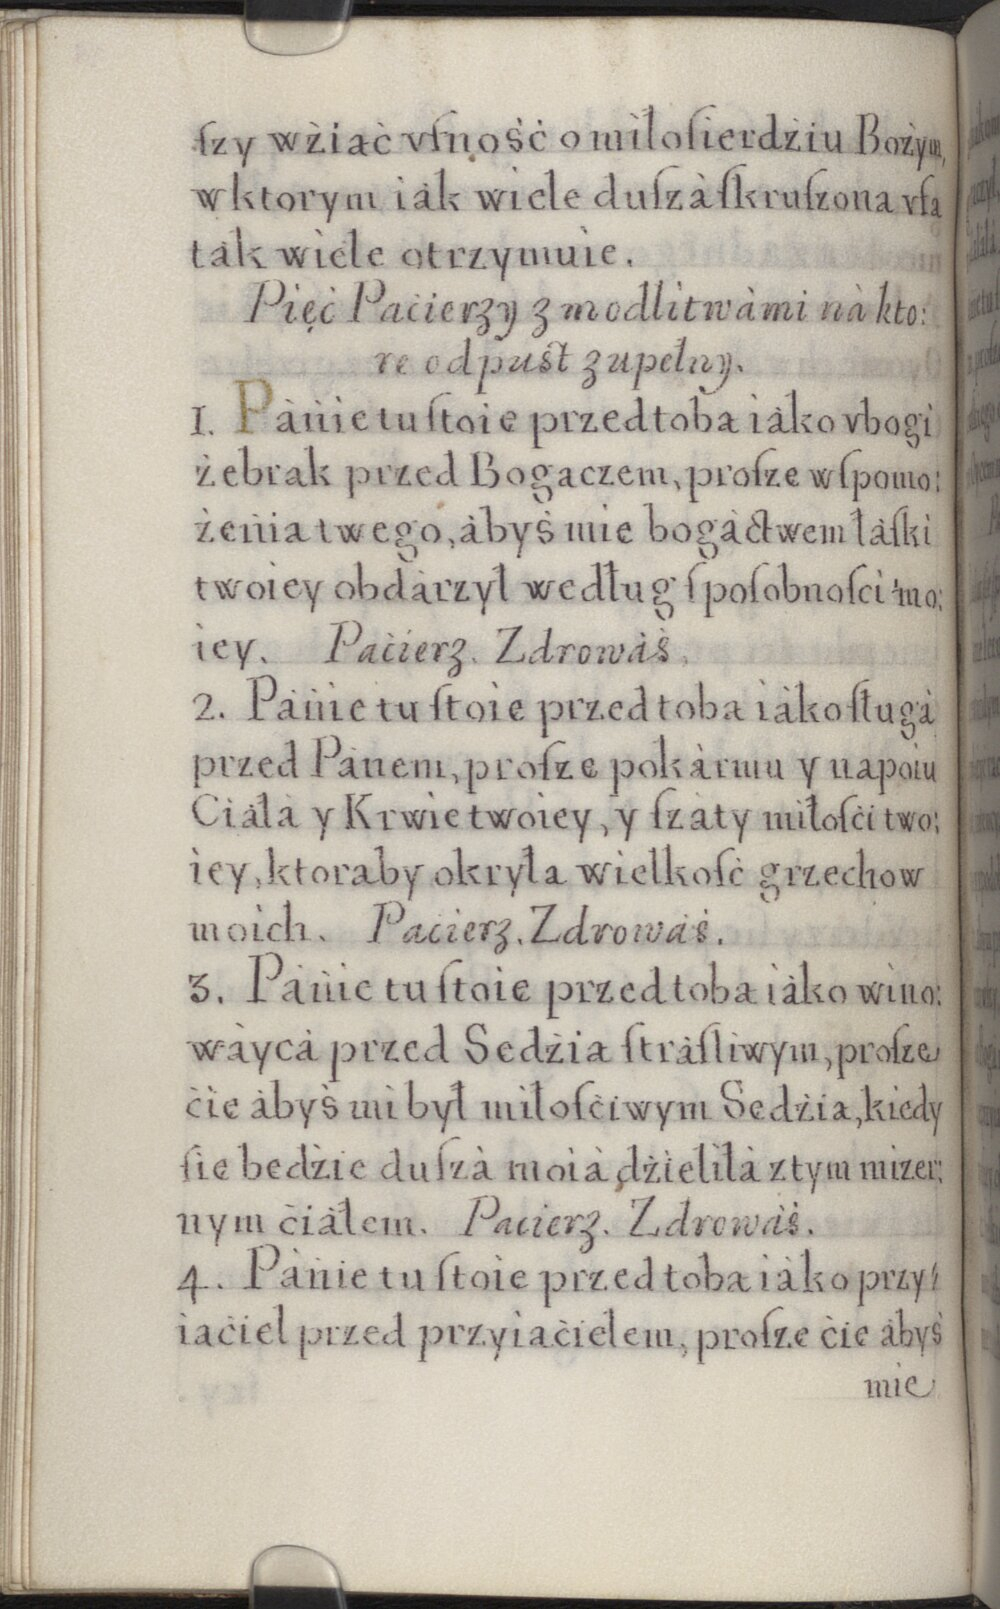 ſzy wźiąć vſność o miłoſierdźiu Bożym,
w ktorym iák wiele duſzá ſkruſzona vfa
ták wiele otrzymuie.
Pięć Paćierzy z modlitwámi ná kto:
re odpust zupełny.
1. Pánie tu ſtoię przed tobą iáko vbogi
żebrak przed Bogaczem, proſzę wſpomo:
żenia twego, ábyś mię bogáctwem łáſki
twoiey obdárzył według ſpoſobnoſci mo:
iey. Paćierz. Zdrowáś.
2. Pánie tu ſtoię przed tobą iáko ſługá
przed Pánem, proſzę pokármu y napoiu
Ciáłá y Krwie twoiey, y ſzáty miłoſći two:
iey, ktoraby okryła wielkoſć grzechow
moich. Pacierz. Zdrowáś.
3. Pánie tu ſtoię przed tobą iáko wino:
wáycá przed Sędźią ſtráſliwym, proſzę
ćię ábyś mi był miłoſćiwym Sędźią, kiedy
ſię będźie duſzá moiá dźieliłá z tym mizer:
nym ćiáłem. Pacierz. Zdrowáś.
4. Pánie tu ſtoię przed tobą iáko przy:
iaćiel przed przyiaćielem, proſzę ćię ábyś
mię